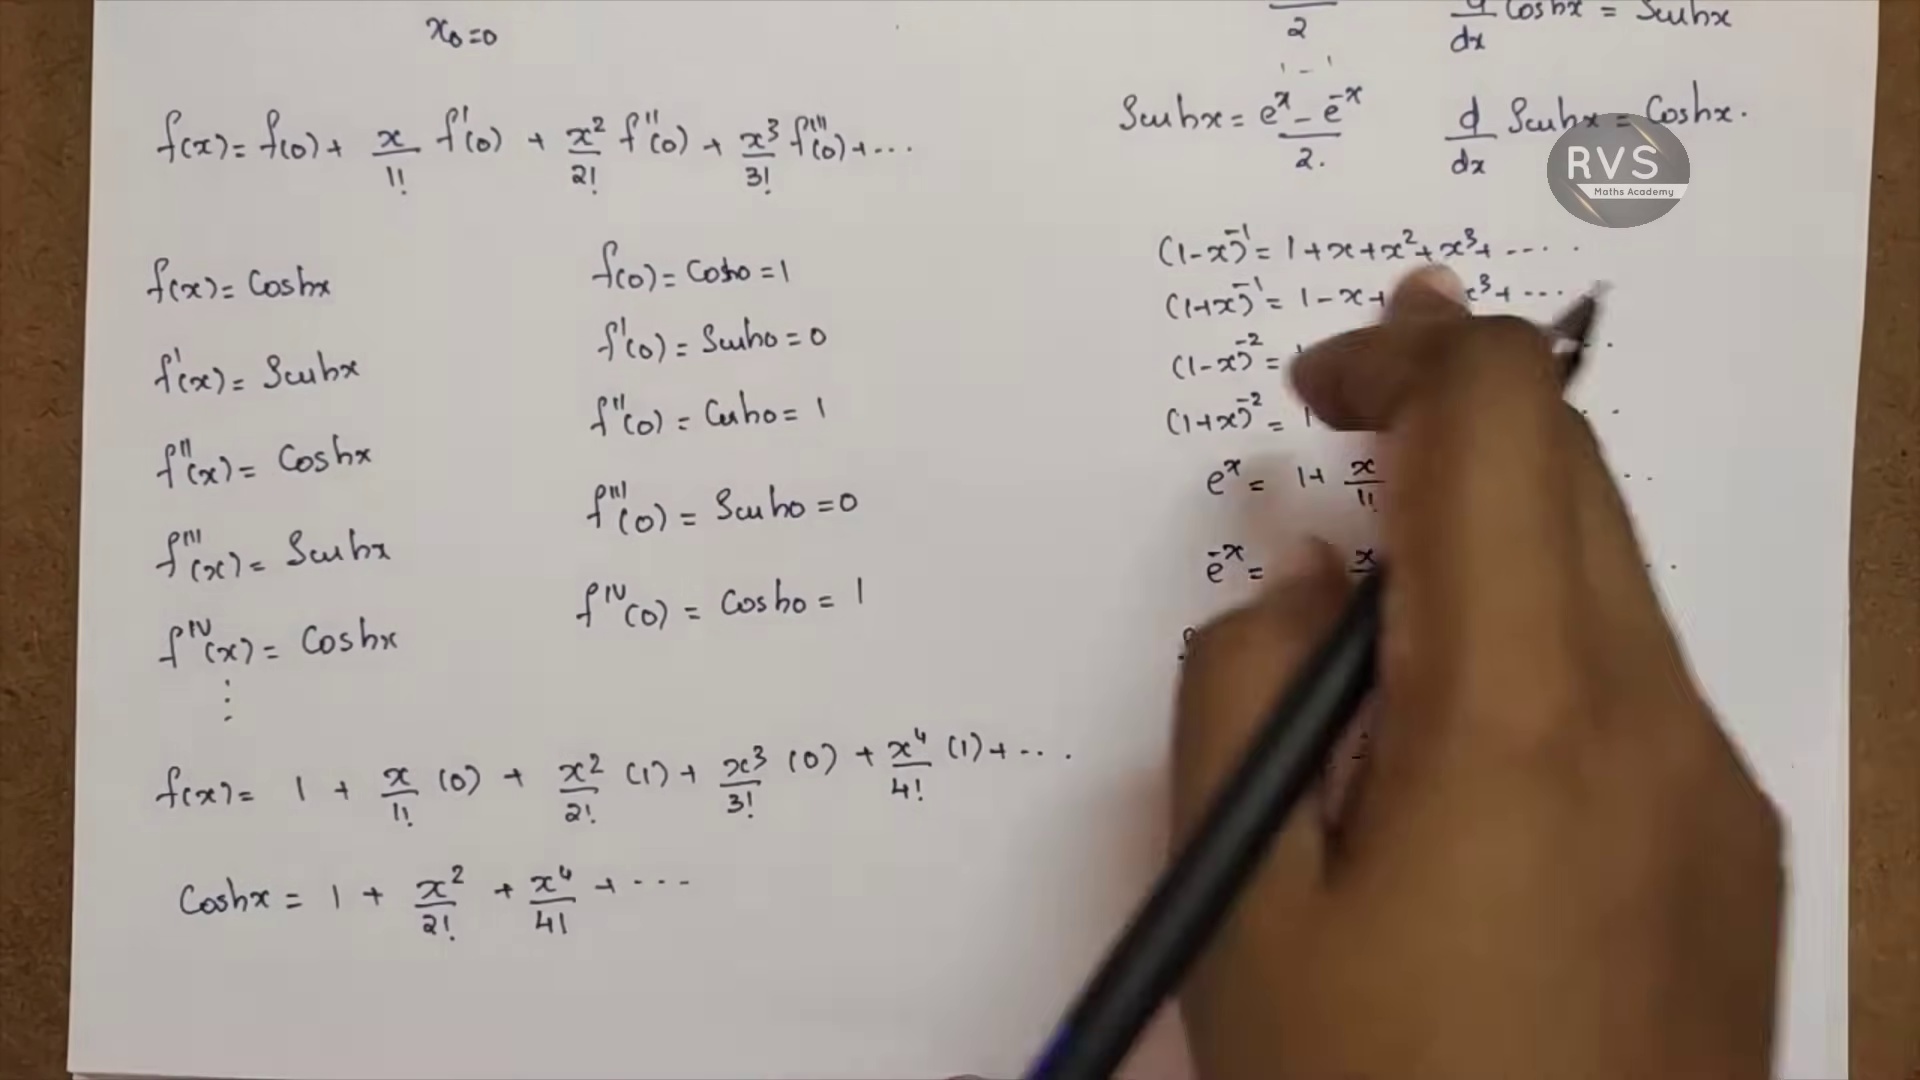 x₀=0
f(x)= f(0)+ x/1! f'(0) + x²/2! f''(0) + x³/3! f'''(0)+...
f(x)= Coshx
f'(x)= Sinhx
f''(x)= Coshx
f'''(x)= Sinhx
f^IV(x)= Coshx
⋮
f(0)= Cosh0 = 1
f'(0) = Sinh0 = 0
f''(0) = Cosh0 = 1
f'''(0) = Sinh0 = 0
f^IV(0) = Cosh0 = 1
f(x)= 1 + x/1! (0) + x²/2! (1) + x³/3! (0) + x⁴/4! (1) + ...
Coshx = 1 + x²/2! + x⁴/4! + ...
2
d/dx Coshx = Sinhx
Sinhx = e^x - e^-x / 2.
d/dx Sinhx = Coshx.
RVS
Maths Academy
(1-x)^-1 = 1+x+x²+x³+....
(1+x)^-1 = 1-x+ x³+...
(1-x)^-2 =
(1+x)^-2 = 1
e^x = 1+ x/1!
e^-x = x